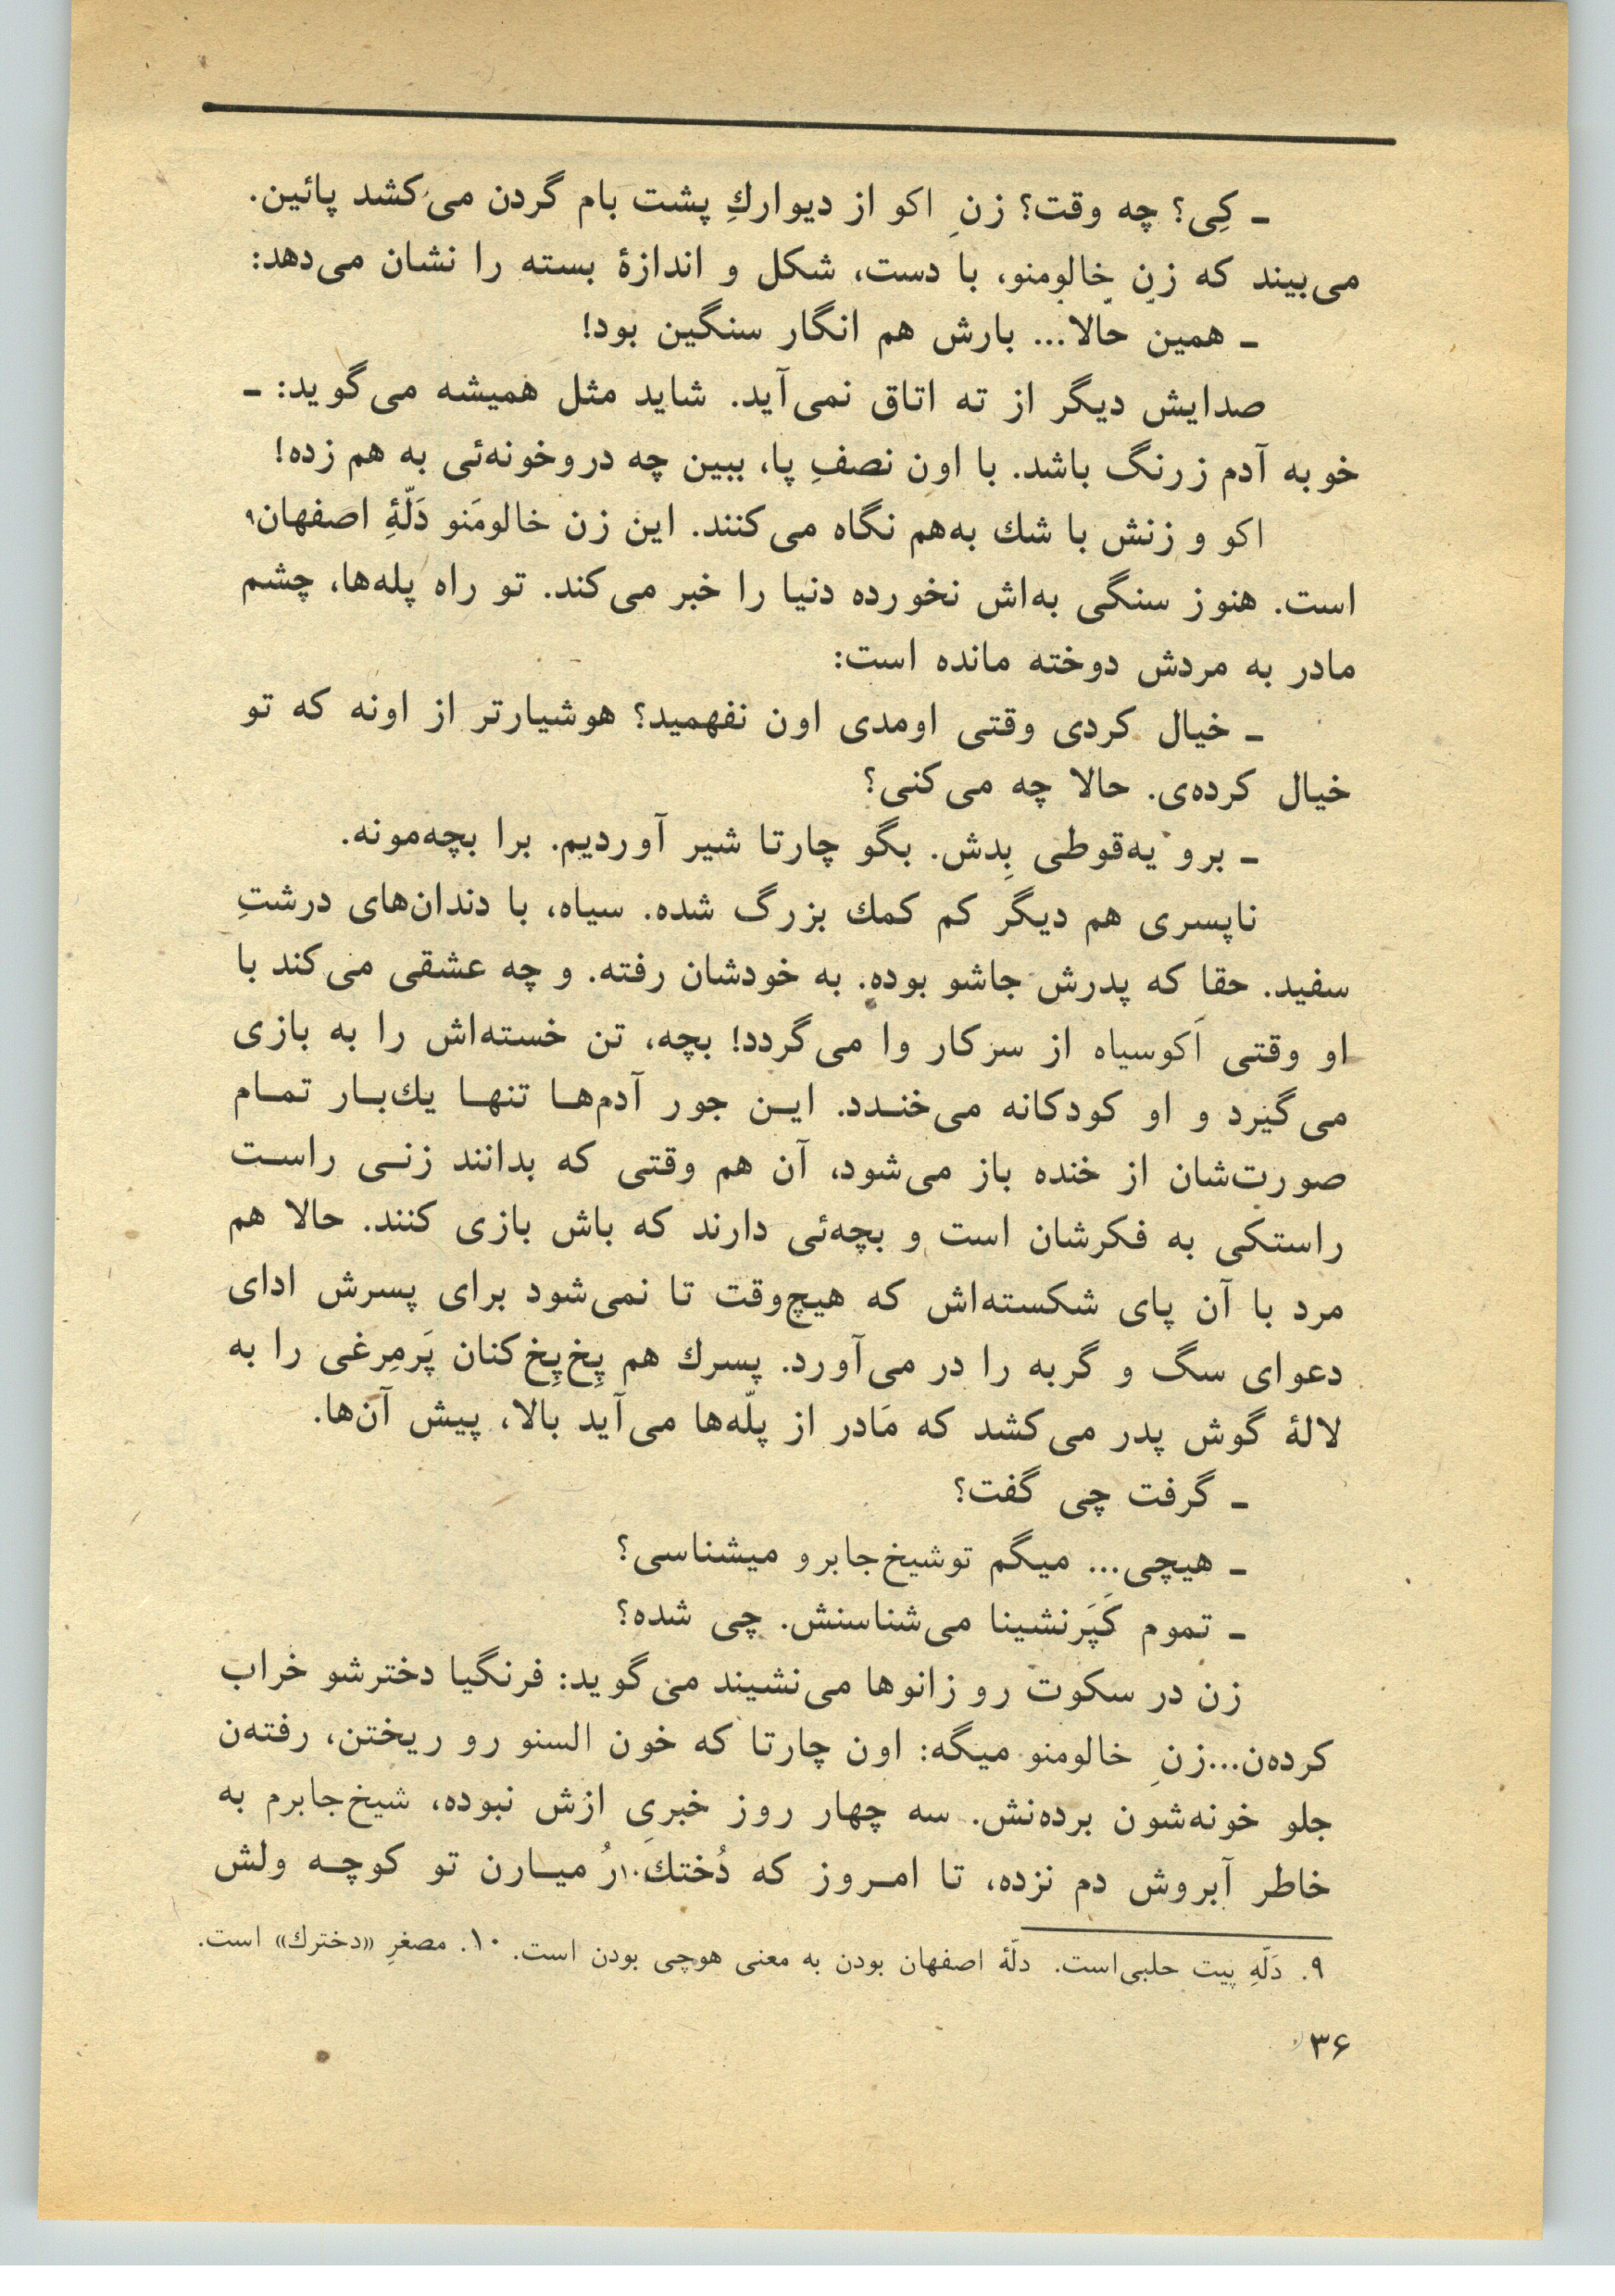 ـ کِی؟ چه وقت؟ زنِ اکو از دیواركِ پشت بام گردن می‌کشد پائین.
می‌بیند که زنِ خالومنو، با دست، شکل و اندازهٔ بسته را نشان می‌دهد:
ـ همین حالا... بارش هم انگار سنگین بود!
صدایش دیگر از ته اتاق نمی‌آید. شاید مثل همیشه می‌گوید: ـ
خو به آدم زرنگ باشد. با اون نصفِ پا، ببین چه دروخونه‌ئی به هم زده!
اکو و زنش با شك به‌هم نگاه می‌کنند. این زن خالومَنو دَلّهِٔ اصفهان۹
است. هنوز سنگی به‌اش نخورده دنیا را خبر می‌کند. تو راه پله‌ها، چشم
مادر به مردش دوخته مانده است:
ـ خیال کردی وقتی اومدی اون نفهمید؟ هوشیارتر از اونه که تو
خیال کرده‌ی. حالا چه می‌کنی؟
ـ برو یه‌قوطی بِدش. بگو چارتا شیر آوردیم. برا بچه‌مونه.
ناپسری هم دیگر کم کمك بزرگ شده. سیاه، با دندان‌های درشتِ
سفید. حقا که پدرش جاشو بوده. به خودشان رفته. و چه عشقی می‌کند با
او وقتی اَکوسیاه از سرکار وا می‌گردد! بچه، تن خسته‌اش را به بازی
می‌گیرد و او کودکانه می‌خندد. این جور آدم‌ها تنها یك‌بار تمام
صورت‌شان از خنده باز می‌شود، آن هم وقتی که بدانند زنی راست
راستکی به فکرشان است و بچه‌ئی دارند که باش بازی کنند. حالا هم
مرد با آن پای شکسته‌اش که هیچ‌وقت تا نمی‌شود برای پسرش ادای
دعوای سگ و گربه را در می‌آورد. پسرك هم پِخ‌پِخ‌کنان پَرمِرغی را به
لالهٔ گوش پدر می‌کشد که مادر از پلّه‌ها می‌آید بالا، پیش آن‌ها.
ـ گرفت چی گفت؟
ـ هیچی... میگم توشیخ‌جابرو میشناسی؟
ـ تموم کَپَرنشینا می‌شناسنش. چی شده؟
زن در سکوت رو زانوها می‌نشیند می‌گوید: فرنگیا دخترشو خراب
کرده‌ن...زنِ خالومنو میگه: اون چارتا که خون السنو رو ریختن، رفته‌ن
جلو خونه‌شون برده‌نش. سه چهار روز خبریِ ازش نبوده، شیخ‌جابرم به
خاطر آبروش دم نزده، تا امروز که دُختك۱۰رُ میارن تو کوچه ولش
۹. دَلّهِ پیت حلبی‌است. دلّهٔ اصفهان بودن به معنی هوچی بودن است. ۱۰. مصغرِ «دخترك» است.
۳۶